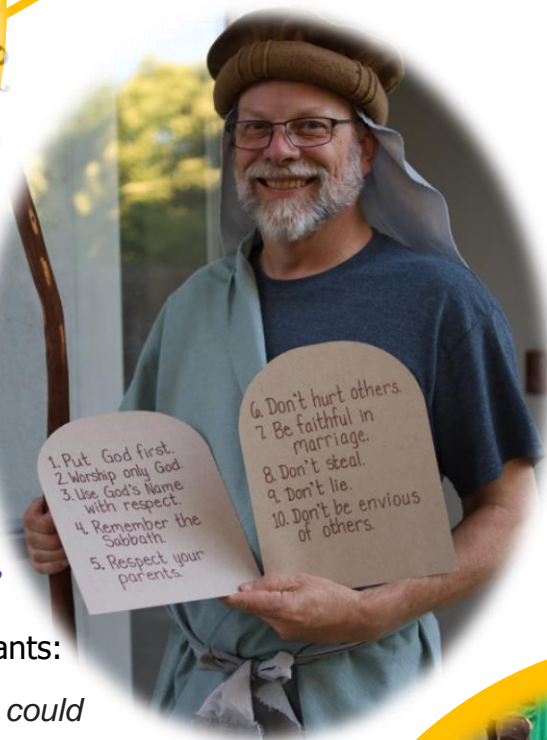 1. Put God first.
2. Worship only God.
3. Use God's Name
with respect.
4. Remember the
Sabbath.
5. Respect your
parents.
6. Don't hurt others.
7. Be faithful in
marriage.
8. Don't steal.
9. Don't lie.
10. Don't be envious
of others.
ants:
could